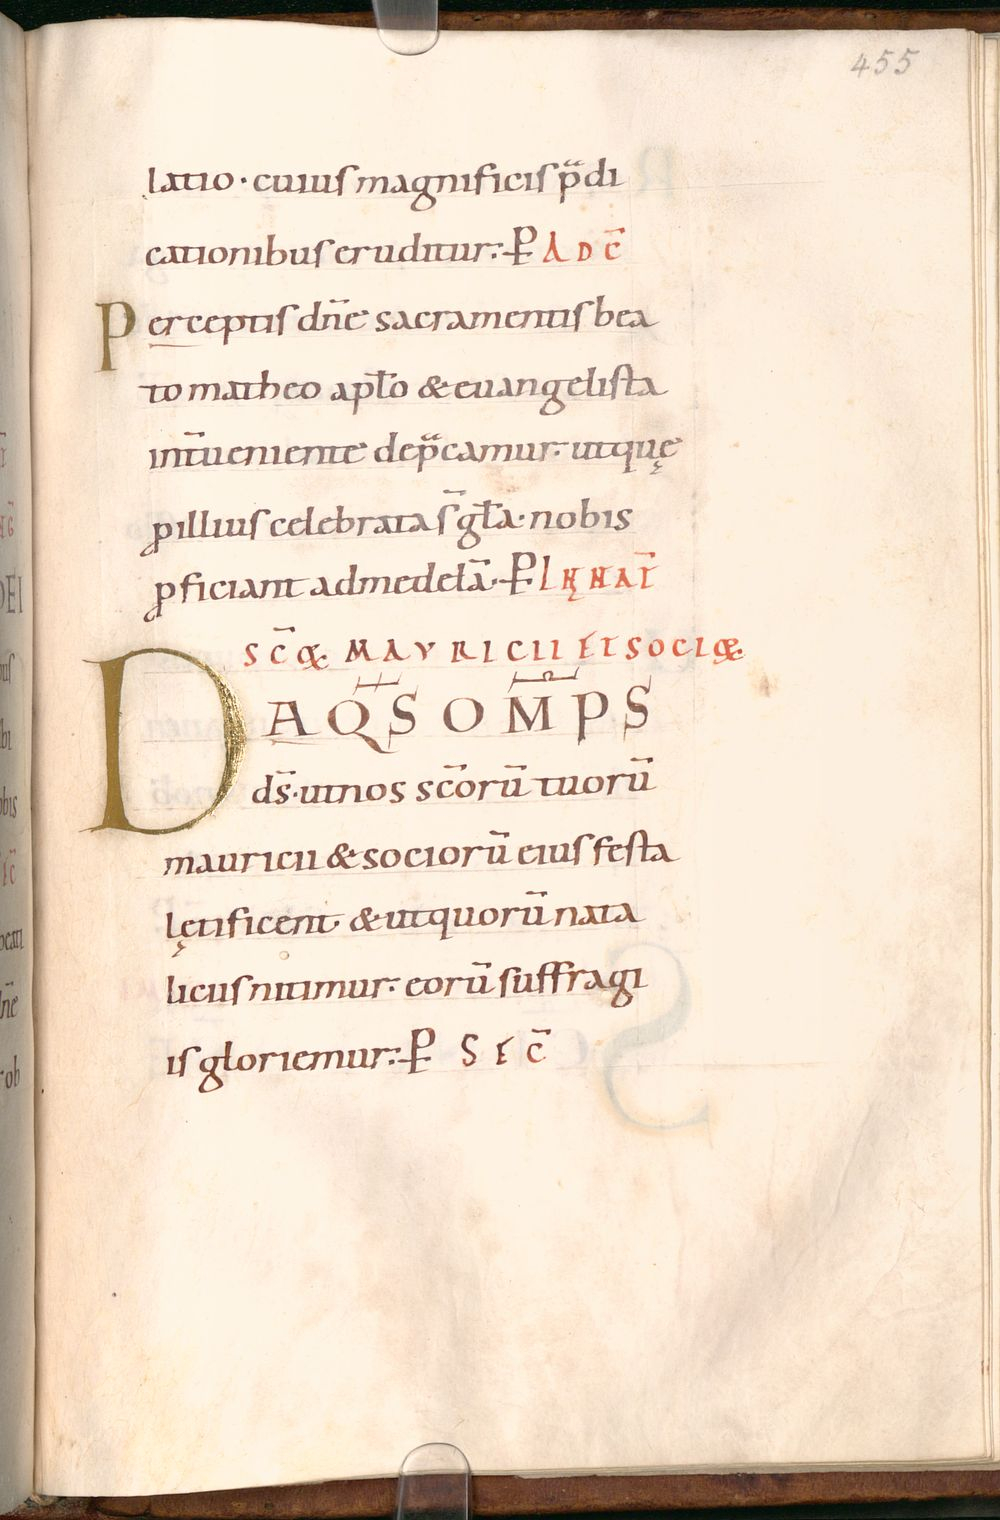 455
latio · cuius magnificis p̄di
cationibus eruditur; P̵ AD C̄
Perceptis dn̄e sacramentis bea
to matheo apl̄o & euangelista
int̄ueniente dep̄camur· utquę
ꝓ illius celebrata s̄ gl̄a· nobis
ꝓficiant ad medelā· P̵
SC̄Ʀ MAVRICII ET SOCIƦ
DA Q̄S OM̄PS
ds̄· ut nos sc̄orū tuorū
mauricii & sociorū eius festa
lętificent & ut quorū nata
licus nitimur· eorū suffragi
is gloriemur; P̵ SEC̄